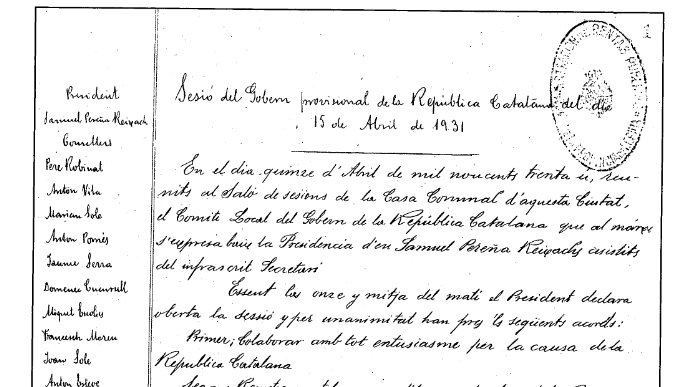 1
President
Samuel Pereña Reixachs
Consellers
Pere Robinat
Anton Vila
Marian Sole
Anton Pomés
Jaume Serra
Domenec Cucurull
Miquel
Francesch
Joan Sole
Anton Esteve
Sesió del Gobern provisional de la República Catalana del dia
15 de Abril de 1931
En el dia quinze d'Abril de mil noucents trenta ú, reu-
nits al Saló de sesions de la Casa Comunal d'aquesta Ciutat,
el Comité Local del Gobern de la República Catalana que al marge
s'expresa baix la Presidencia d'en Samuel Pereña Reixachs asistits
del infrascrit Secretari
Essent las onze y mitja del matí el President declara
oberta la sessió y per unanimitat han pres els següents acords:
Primer; Colaborar amb tot entusiasme per la causa de la
República Catalana